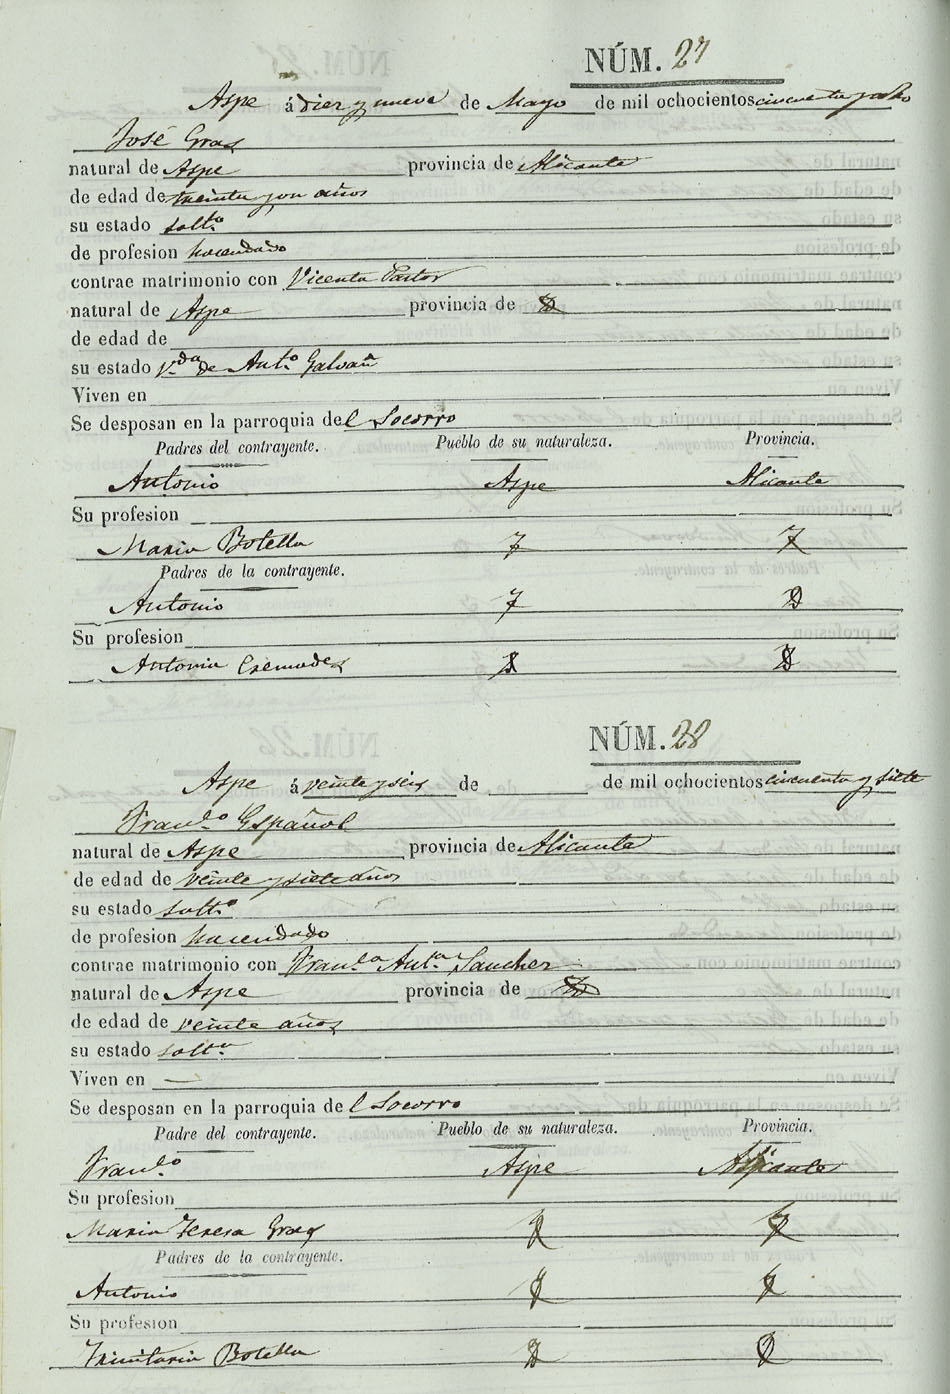 NÚM. 27
Aspe á diez y nueve de Mayo de mil ochocientos cincuenta y ocho
José Gras
natural de Aspe provincia de Alicante
de edad de treinta y un años
su estado solt.º
de profesion hacendado
contrae matrimonio con Vicenta Pastor
natural de Aspe provincia de
de edad de
su estado v.da de Ant.º Galvañ
Viven en
Se desposan en la parroquia del Socorro
Padres del contrayente. Pueblo de su naturaleza. Provincia.
Antonio Aspe Alicante
Su profesion
Maria Botella
Padres de la contrayente.
Antonio
Su profesion
Antonia Cremades
NÚM. 28
Aspe á veinte y seis de de mil ochocientos cincuenta y siete
Fran.co Español
natural de Aspe provincia de Alicante
de edad de veinte y siete años
su estado solt.º
de profesion hacendado
contrae matrimonio con Fran.ca Ant.a Sanchez
natural de Aspe provincia de
de edad de veinte años
su estado solt.a
Viven en —
Se desposan en la parroquia del Socorro
Padre del contrayente. Pueblo de su naturaleza. Provincia.
Fran.co Aspe Alicante
Su profesion
Maria Teresa Gras
Padres de la contrayente.
Antonio
Su profesion
Trinitaria Botella